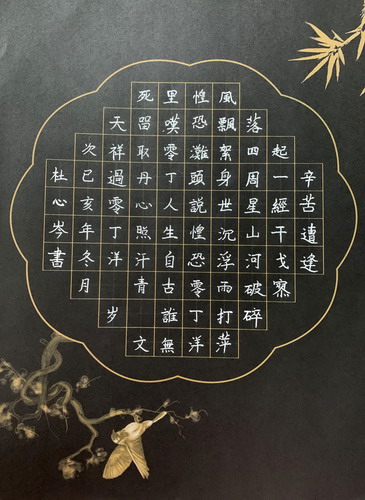 辛苦遭逢
起一經干戈寥
落四周星山河破碎
風飄絮身世沉浮雨打萍
惶恐灘頭說惶恐零丁洋
里嘆零丁人生自古誰無
死留取丹心照汗青 文
天祥過零丁洋 岁
次己亥年冬月
杜心岑書